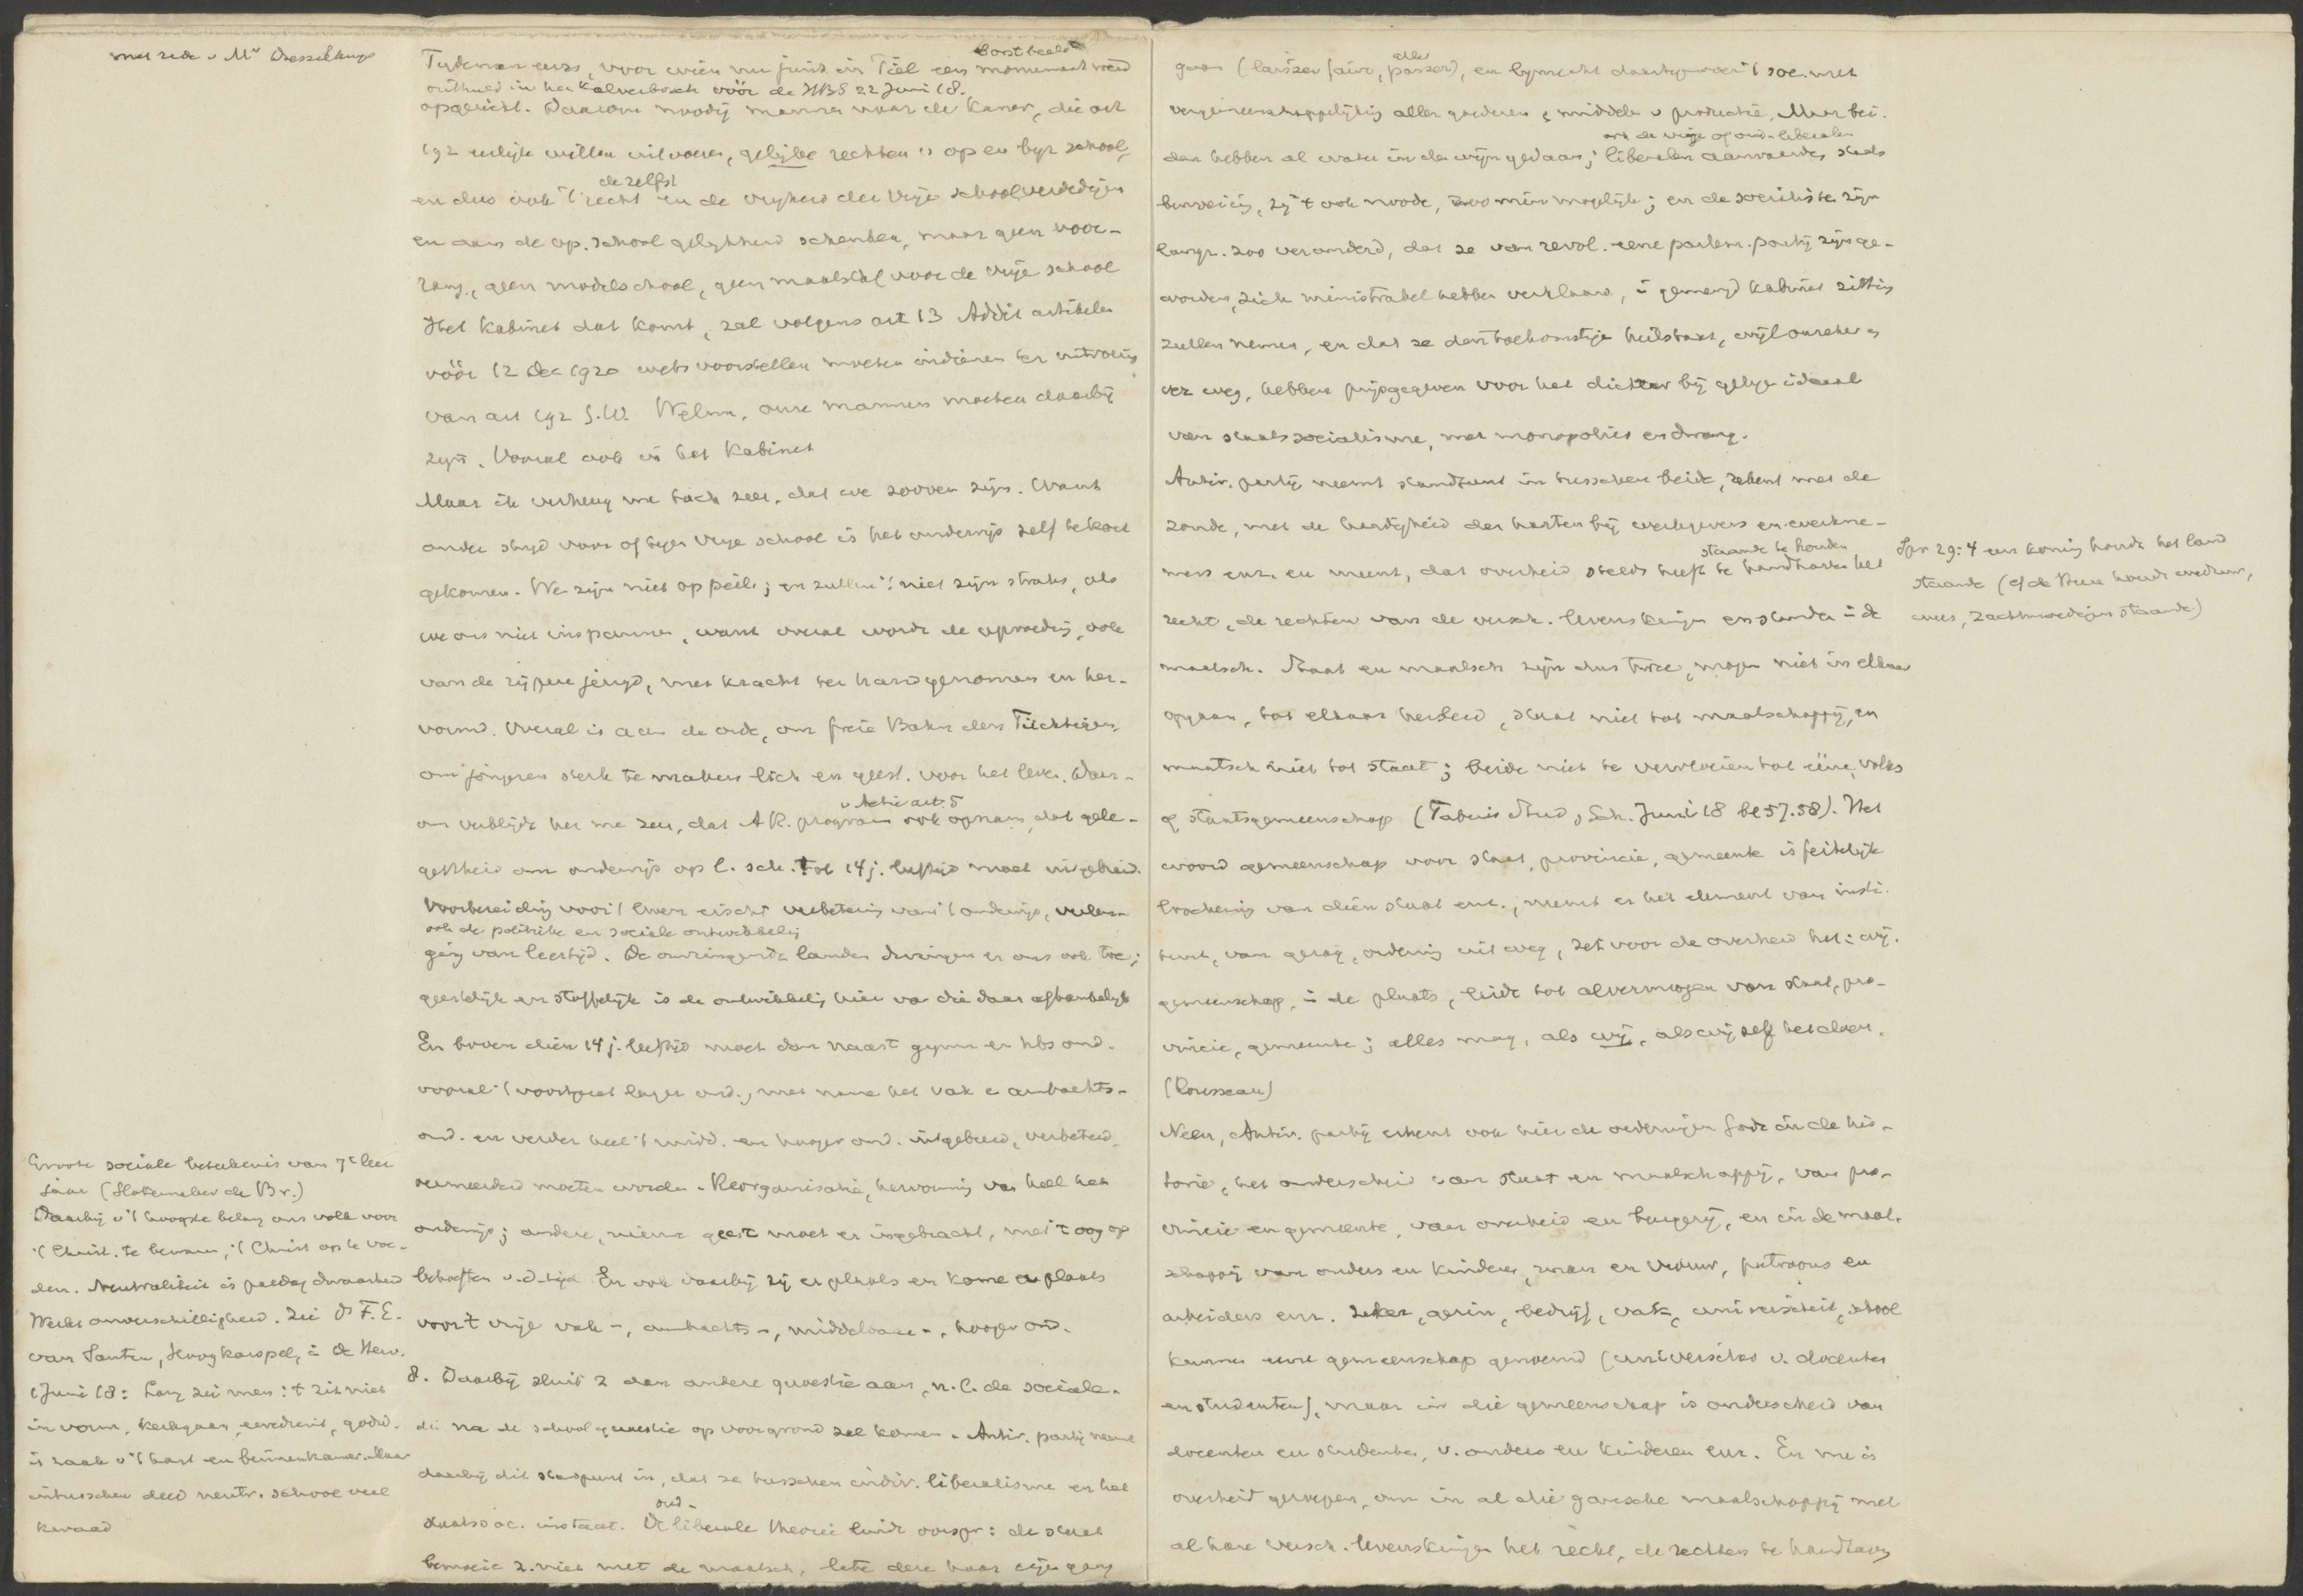 met rede v Mr Dresselhuys
borstbeeld
Tydeman enz, voor wien nu juist in Tiel een monument werd
onthuld in het Kalverbosch vóór de HBS 22 Juni 18.
opgericht. Daarom noodig mannen naar de Kamer, die art
192 eerlijk willen uitvoeren, gelijke rechten v op en byz school,
de zelfst
en dus ook 't recht en de vrijheid der vrije school verdedigen
en aan de op. school gelijkheid schenken, maar geen voor-
rang, geen modelschool, geen maatstaf voor de vrije school
Het Kabinet dat komt, zal volgens art 13 Addit artikelen
vóór 12 Dec 1920 wetsvoorstellen moeten indienen ter uitvoering
van art 192 G.W. Welnu, onze mannen moeten daarbij
zijn. Vooral ook in het Kabinet
Maar ik verheug me toch zeer, dat we zoover zijn. Want
onder strijd voor of tegen vrije school is het onderwijs zelf te kort
gekomen. We zijn niet op peil; en zullen 't niet zijn straks, als
we ons niet inspannen, want overal wordt de opvoeding, ook
van de rijpere jeugd, met kracht ter hand genomen en her-
vormd. Overal is aan de orde, om freie Bahn dem Tüchtigen,
om jongeren sterk te maken lich en geest. voor het leven. Daar-
v Actie art. 5
om verblijdt het me zeer, dat AR. program ook opnam, dat gele-
genheid om onderwijs op l. sch. tot 14 j. leeftijd moet uitgebreid.
Voorbereiding voor 't leven eischt verbetering van 't onderwijs, verlen-
ook de politieke en sociale ontwikkeling
ging van leertijd. De omringende landen dwingen er ons ook toe;
geestelijk en stoffelijk is de ontwikkeling hier van die daar afhankelijk
En boven dien 14 j. leeftijd moet dan naast gymn en hbs ond.
vooral 't voortgezet lager ond., met name het vak & ambachts-
ond. en verder heel 't midd. en hooger ond. uitgebreid, verbeterd,
vermeerderd moeten worden. Reorganisatie, hervorming van heel het
onderwijs; andere, nieuwe geest moet er ingebracht, met 't oog op
behoeften v.d. tijd En ook daarbij zij er plaats en kome er plaats
voor 't vrije vak-, ambachts-, middelbare-, hooger ond.
8. Daarbij sluit z dan andere quaestie aan, n.l. de sociale.
die na de schoolquaestie op voorgrond zal komen. Antir. partij neemt
daarbij dit standpunt in, dat ze tusschen indiv. liberalisme en het
oud-
staatssoc. instaat. De liberale theorie luidt oorspr: de staat
bemoeie z. niet met de maatsch, late deze haar eigen gang
Groote sociale beteekenis van 7e leer
jaar (Slotemaker de Br.)
Daarbij v 't hoogste belang ons volk voor
't Christ. te bewaren, 't Christ op te voe-
den. Neutraliteit is paedag dwaasheid
Wekt onverschilligheid. Zie Ds F.E.
van Santen, Hoogkarspel, i de Herv.
1 Juni 18: Lang zei men: 't zit niet
in vorm, kerkgaan, eeredienst, godsd.
is zaak v 't hart en binnenkamer. Maar
intusschen deed neutr. school veel
kwaad
alles
gaan (laissez faire, passer), en lijnrecht daartegenover 't soc. met
vergemeenschappelijking aller goederen & middelen v productie. Maar bei-
ook de vrije of oud-liberalen
den hebben al water in den wijn gedaan; liberalen aanvaarden staats
bemoeiing, zij 't ook noode, zoo min mogelijk; en de socialisten zijn
langz. zoo veranderd, dat ze van revol. eene parlem. partij zijn ge-
worden, zich ministrabel hebben verklaard, i gemengd kabinet zitting
zullen nemen, en dat ze den toekomstigen heilstaat, wijl onzeker en
ver weg, hebben prijsgegeven voor het dichter bij gelegen ideaal
van staatssocialisme, met monopolies en dwang.
Antir. partij neemt standpunt in tusschen beide, rekent met de
zonde, met de hardigheid der harten bij werkgevers en werkne-
staande te houden
mers enz. en meent, dat overheid steeds heeft te handhaven het
recht, de rechten van de versch. levenskringen en standen i de
maatsch. Staat en maatsch zijn dus twee, mogen niet in elkaar
opgaan, tot elkaar herleid, staat niet tot maatschappij, en
maatsch niet tot staat; beide niet te vervloeien tot eene volks
of staatsgemeenschap (Fabius Stud, Sch. Juni 18 bl 57.58). Het
woord gemeenschap voor staat, provincie, gemeente is feitelijk
loochening van dien staat enz., neemt er het element van insti-
tuut, van gezag, ordening uit weg, zet voor de overheid het: wij.
gemeenschap, i de plaats, leidt tot alvermogen van staat, pro-
vincie, gemeente; alles mag, als wij, als wij zelf het doen.
(Rousseau)
Neen, Antir. partij erkent ook hier de ordeningen Gods in de his-
torie, het onderscheid van staat en maatschappij, van pro-
vincie en gemeente, van overheid en burgerij, en in de maat-
schappij van ouders en kinderen, man en vrouw, patroons en
arbeiders enz. Zeker, gezin, bedrijf, vak, universiteit, school
kunnen eene gemeenschap genoemd (universitas v. docenten
en studenten), maar in die gemeenschap is onderscheid van
docenten en studenten, v. ouders en kinderen enz. En nu is
overheid geroepen, om in al die gansche maatschappij met
al hare versch. levenskringen het recht, de rechten te handhaven
Spr 29:4 een koning houdt het land
staande (cf de Heere houdt weduwe,
wees, zachtmoedigen staande)